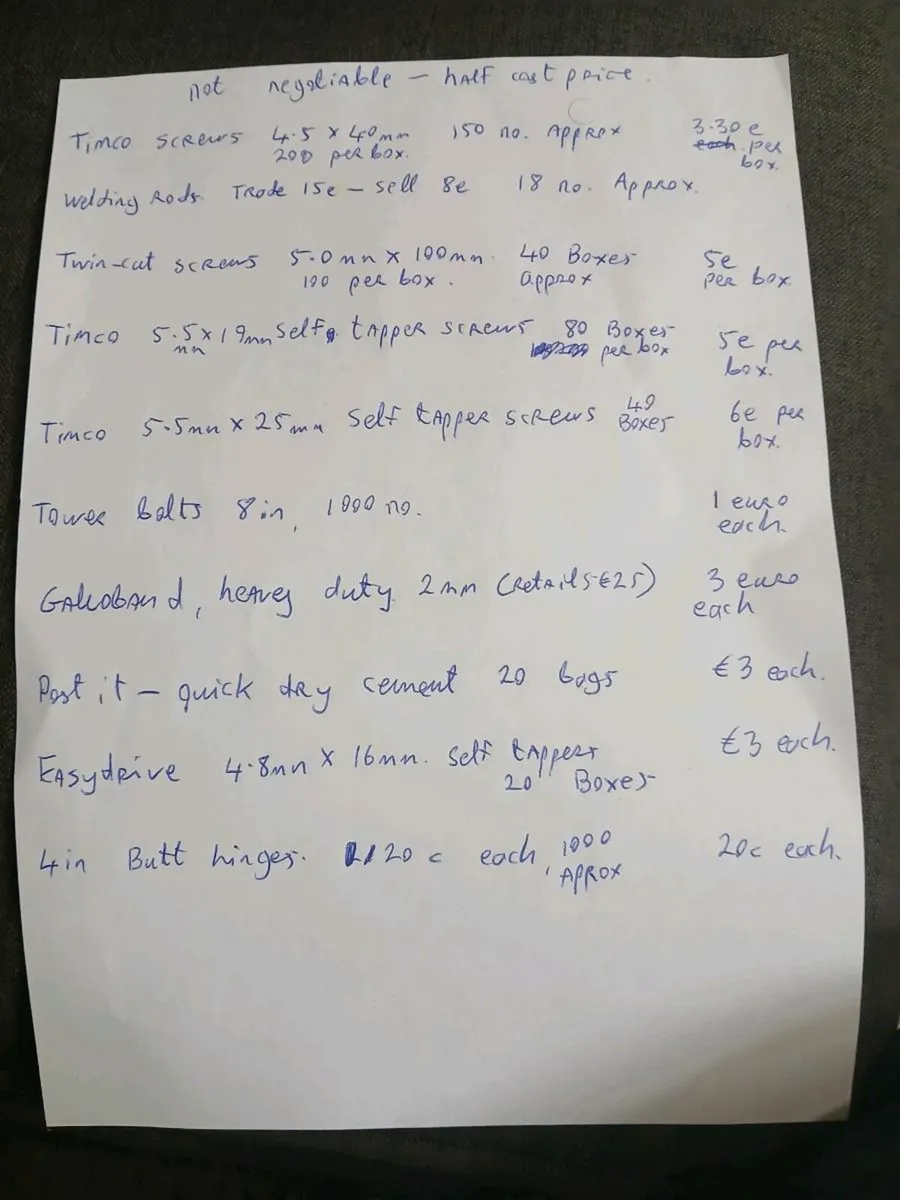 not negotiable – half cost price.
Timco screws 4.5 x 40mm 150 no. Approx 3.30e
200 per box. each per
box.
Welding Rods. Trade 15e – sell 8e 18 no. Approx.
Twin-cut screws 5.0mm x 100mm. 40 Boxes 5e
100 per box. approx per box.
Timco 5.5 x 19mm self tapper screws 80 Boxes 5e per
mm per box box.
Timco 5.5mm x 25mm self tapper screws 40 6e per
Boxes box.
Tower bolts 8in, 1000 no. 1 euro
each.
Galvoband, heavey duty 2mm (retails €25) 3 euro
each
Post it – quick dry cement 20 bags €3 each.
Easydrive 4.8mm x 16mm. self tappers €3 each.
20 Boxes
4in Butt hinges. 20c each, 1000 20c each.
Aprox